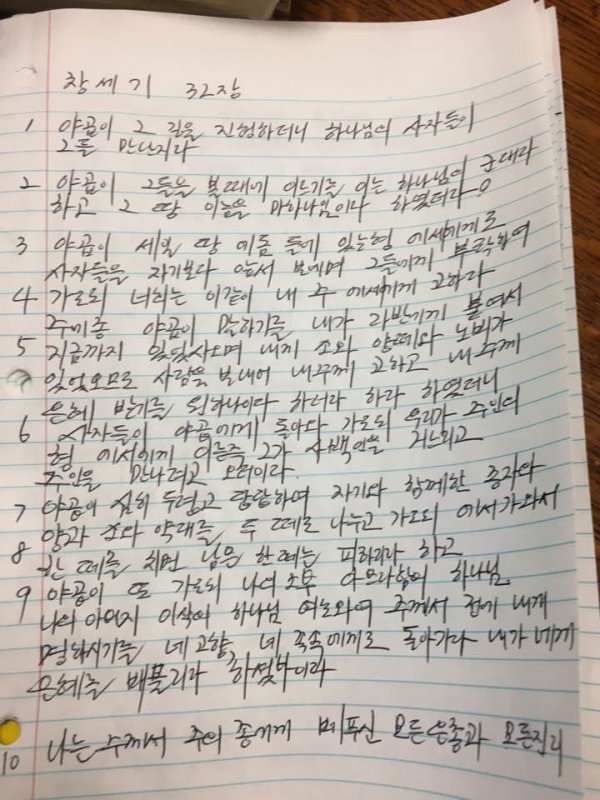 창세기 32장
1 야곱이 그 길을 진행하더니 하나님의 사자들이
그를 만난지라
2 야곱이 그들을 볼때에 이르기를 이는 하나님의 군대라
하고 그 땅 이름을 마하나임이라 하였더라
3 야곱이 세일 땅 에돔 들에 있는형 에서에게로
사자들을 자기보다 앞서 보내며 그들에게 부탁하여
4 가로되 너희는 이같이 내 주 에서에게 고하라
주의종 야곱이 말하기를 내가 라반에게 붙여서
5 지금까지 있었사오며 내게 소와 양떼와 노비가
있었으므로 사람을 보내어 내주께 고하고 내 주께
은혜 받기를 원하나이다 하더라 하라 하였더니
6 사자들이 야곱에게 돌아와 가로되 우리가 주인의
형 에서에게 이른즉 그가 사백인을 거느리고
주인을 만나려고 오더이다
7 야곱이 심히 두렵고 답답하여 자기와 함께한 종자와
양과 소와 약대를 두 떼로 나누고 가로되 에서가와서
8 한 떼를 치면 남은 한떼는 피하리라 하고
9 야곱이 또 가로되 나의 조부 아브라함의 하나님
나의 아버지 이삭의 하나님 여호와여 주께서 전에 내게
명하시기를 네 고향, 네 족속에게로 돌아가라 내가 네게
은혜를 베풀리라 하셨나이다
10 나는 주께서 주의 종에게 베푸신 모든 은총과 모든진리